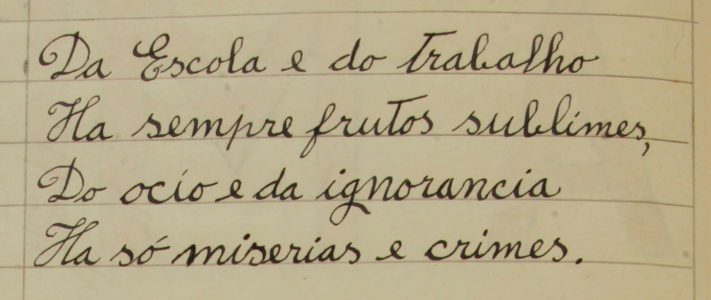 Da Escola e do Trabalho
Ha sempre frutos sublimes,
Do ocio e da ignorancia
Ha só miserias e crimes.